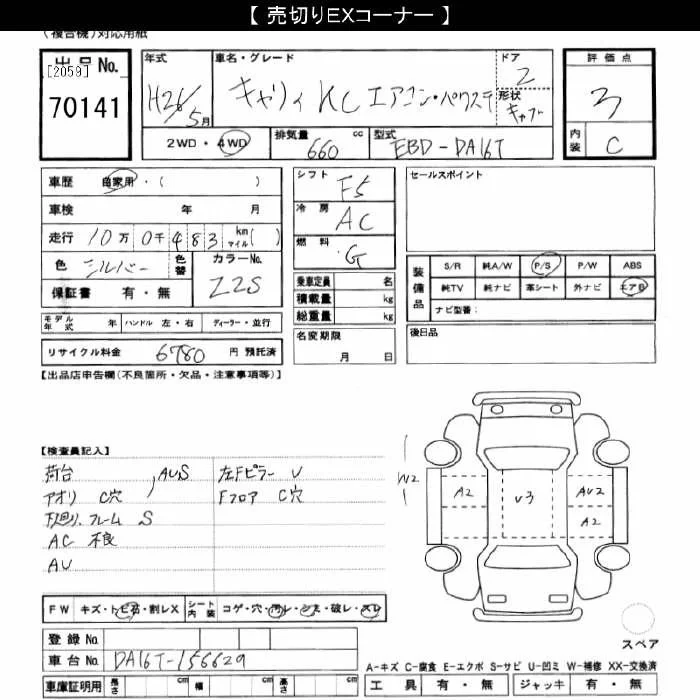 【 売切りEXコーナー 】
(複合機)対応用紙
出品No.
[2059]
70141
年式
H26/5月
車名・グレード
キャリィ KC エアコン・パワステ
ドア
2
形状
キャブ
2WD・4WD
排気量
660 cc
型式
EBD-DA16T
評価点
3
内装
C
車歴 自家用・( )
車検 年 月
走行 10万0千483 km マイル( )
色 シルバー
色替
カラーNo.
Z2S
保証書 有・無
モデル年式 年 ハンドル 左・右 ディーラー・並行
リサイクル料金 6780 円 預託済
シフト
F5
冷房
AC
燃料
G
乗車定員 名
積載量 kg
総重量 kg
名変期限
月 日
セールスポイント
装備品
S/R 純A/W P/S P/W ABS
純TV 純ナビ 革シート 外ナビ エアB
ナビ型番:
後日品
【出品店申告欄(不良箇所・欠品・注意事項等)】
【検査員記入】
荷台 , AUS
アオリ C穴
下廻り、フレーム S
AC 不良
AU
左Fピラー U
Fフロア C穴
W2
A2
V3
AU2
A2
FW キズ・トビ石・割レX
シート内装 コゲ・穴・汚レ・シミ・破レ・スレ
登録No.
車台No. DA16T-156629
車庫証明用 長さ cm 幅 cm 高さ cm
スペア
A-キズ C-腐食 E-エクボ S-サビ U-凹ミ W-補修 XX-交換済
工具 有・無 ジャッキ 有・無